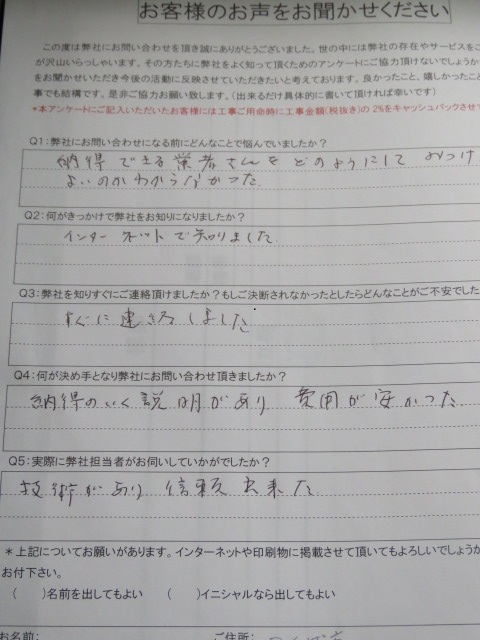 お客様のお声をお聞かせください
この度は弊社にお問い合わせを頂き誠にありがとうございました。世の中には弊社の存在やサービスをご
が沢山いらっしゃいます。その方たちに弊社をよく知って頂くためのアンケートにご協力頂けないでしょうか
をお聞かせいただき今後の活動に反映させていただきたいと考えております。良かったこと、嬉しかったこと
事でも結構です。是非ご協力お願い致します。（出来るだけ具体的に書いて頂ければ幸いです）
*本アンケートにご記入いただいたお客様には工事ご用命時に工事金額(税抜き)の 2%をキャッシュバックさせて
Q1：弊社にお問い合わせになる前にどんなことで悩んでいましたか？
納得できる業者さんをどのようにして みつけ
よいのかわからなかった
Q2：何がきっかけで弊社をお知りになりましたか？
インターネットで知りました
Q3：弊社を知りすぐにご連絡頂けましたか？もしご決断されなかったとしたらどんなことがご不安でした
すぐに連絡しました
Q4：何が決め手となり弊社にお問い合わせ頂きましたか？
納得のいく説明があり 費用が安かった
Q5：実際に弊社担当者がお伺いしていかがでしたか？
技術があり 信頼出来た
＊上記についてお願いがあります。インターネットや印刷物に掲載させて頂いてもよろしいでしょうか
お付下さい。
（　　）名前を出してもよい　（　　）イニシャルなら出してもよい
お名前：　ご住所：